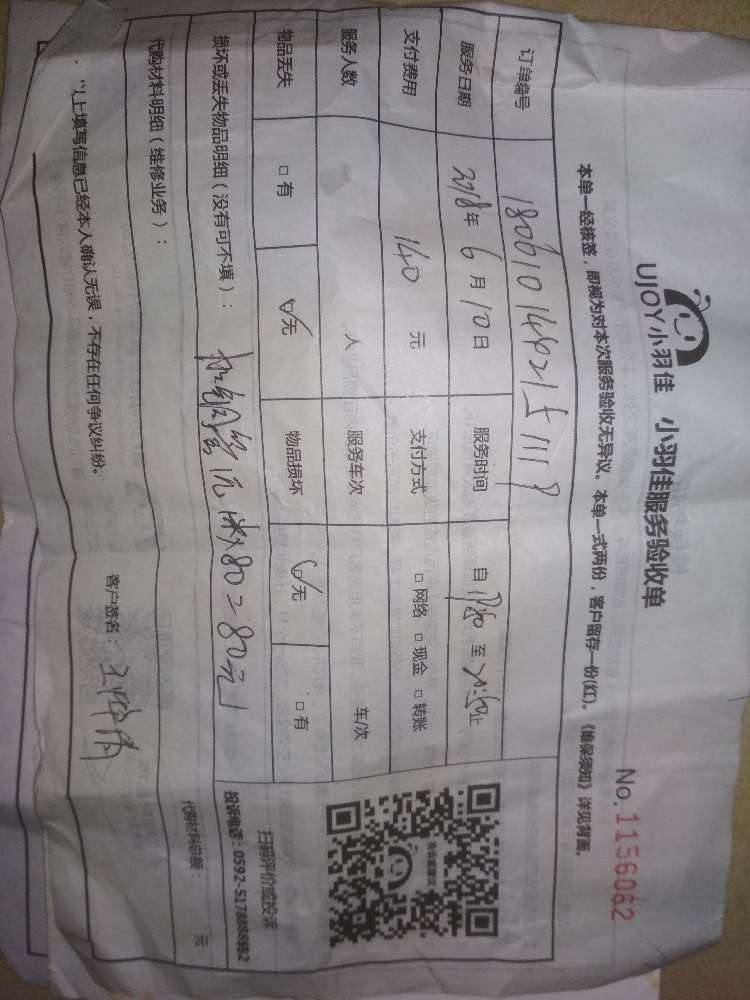 UJOY小羽佳 小羽佳服务验收单
No.1156062
本单一经核签，即视为对本次服务验收无异议。本单一式两份，客户留存一份(红)。《维保须知》详见背面。
订单编号
服务日期 2018年 6月10日 服务时间 自 至 止
支付费用 140 元 支付方式 □网络 □现金 □转账
服务人数 人 服务车次 车/次
物品丢失 □有 ☑无 物品损坏 ☑无 □有
损坏或丢失物品明细（没有可不填）： 80=80元
扫码评价或投诉
投诉电话：0592-5178888转2
代购材料明细（维修业务）：
代购材料总额： 元
以上填写信息已经本人确认无误，不存在任何争议纠纷。
客户签名：